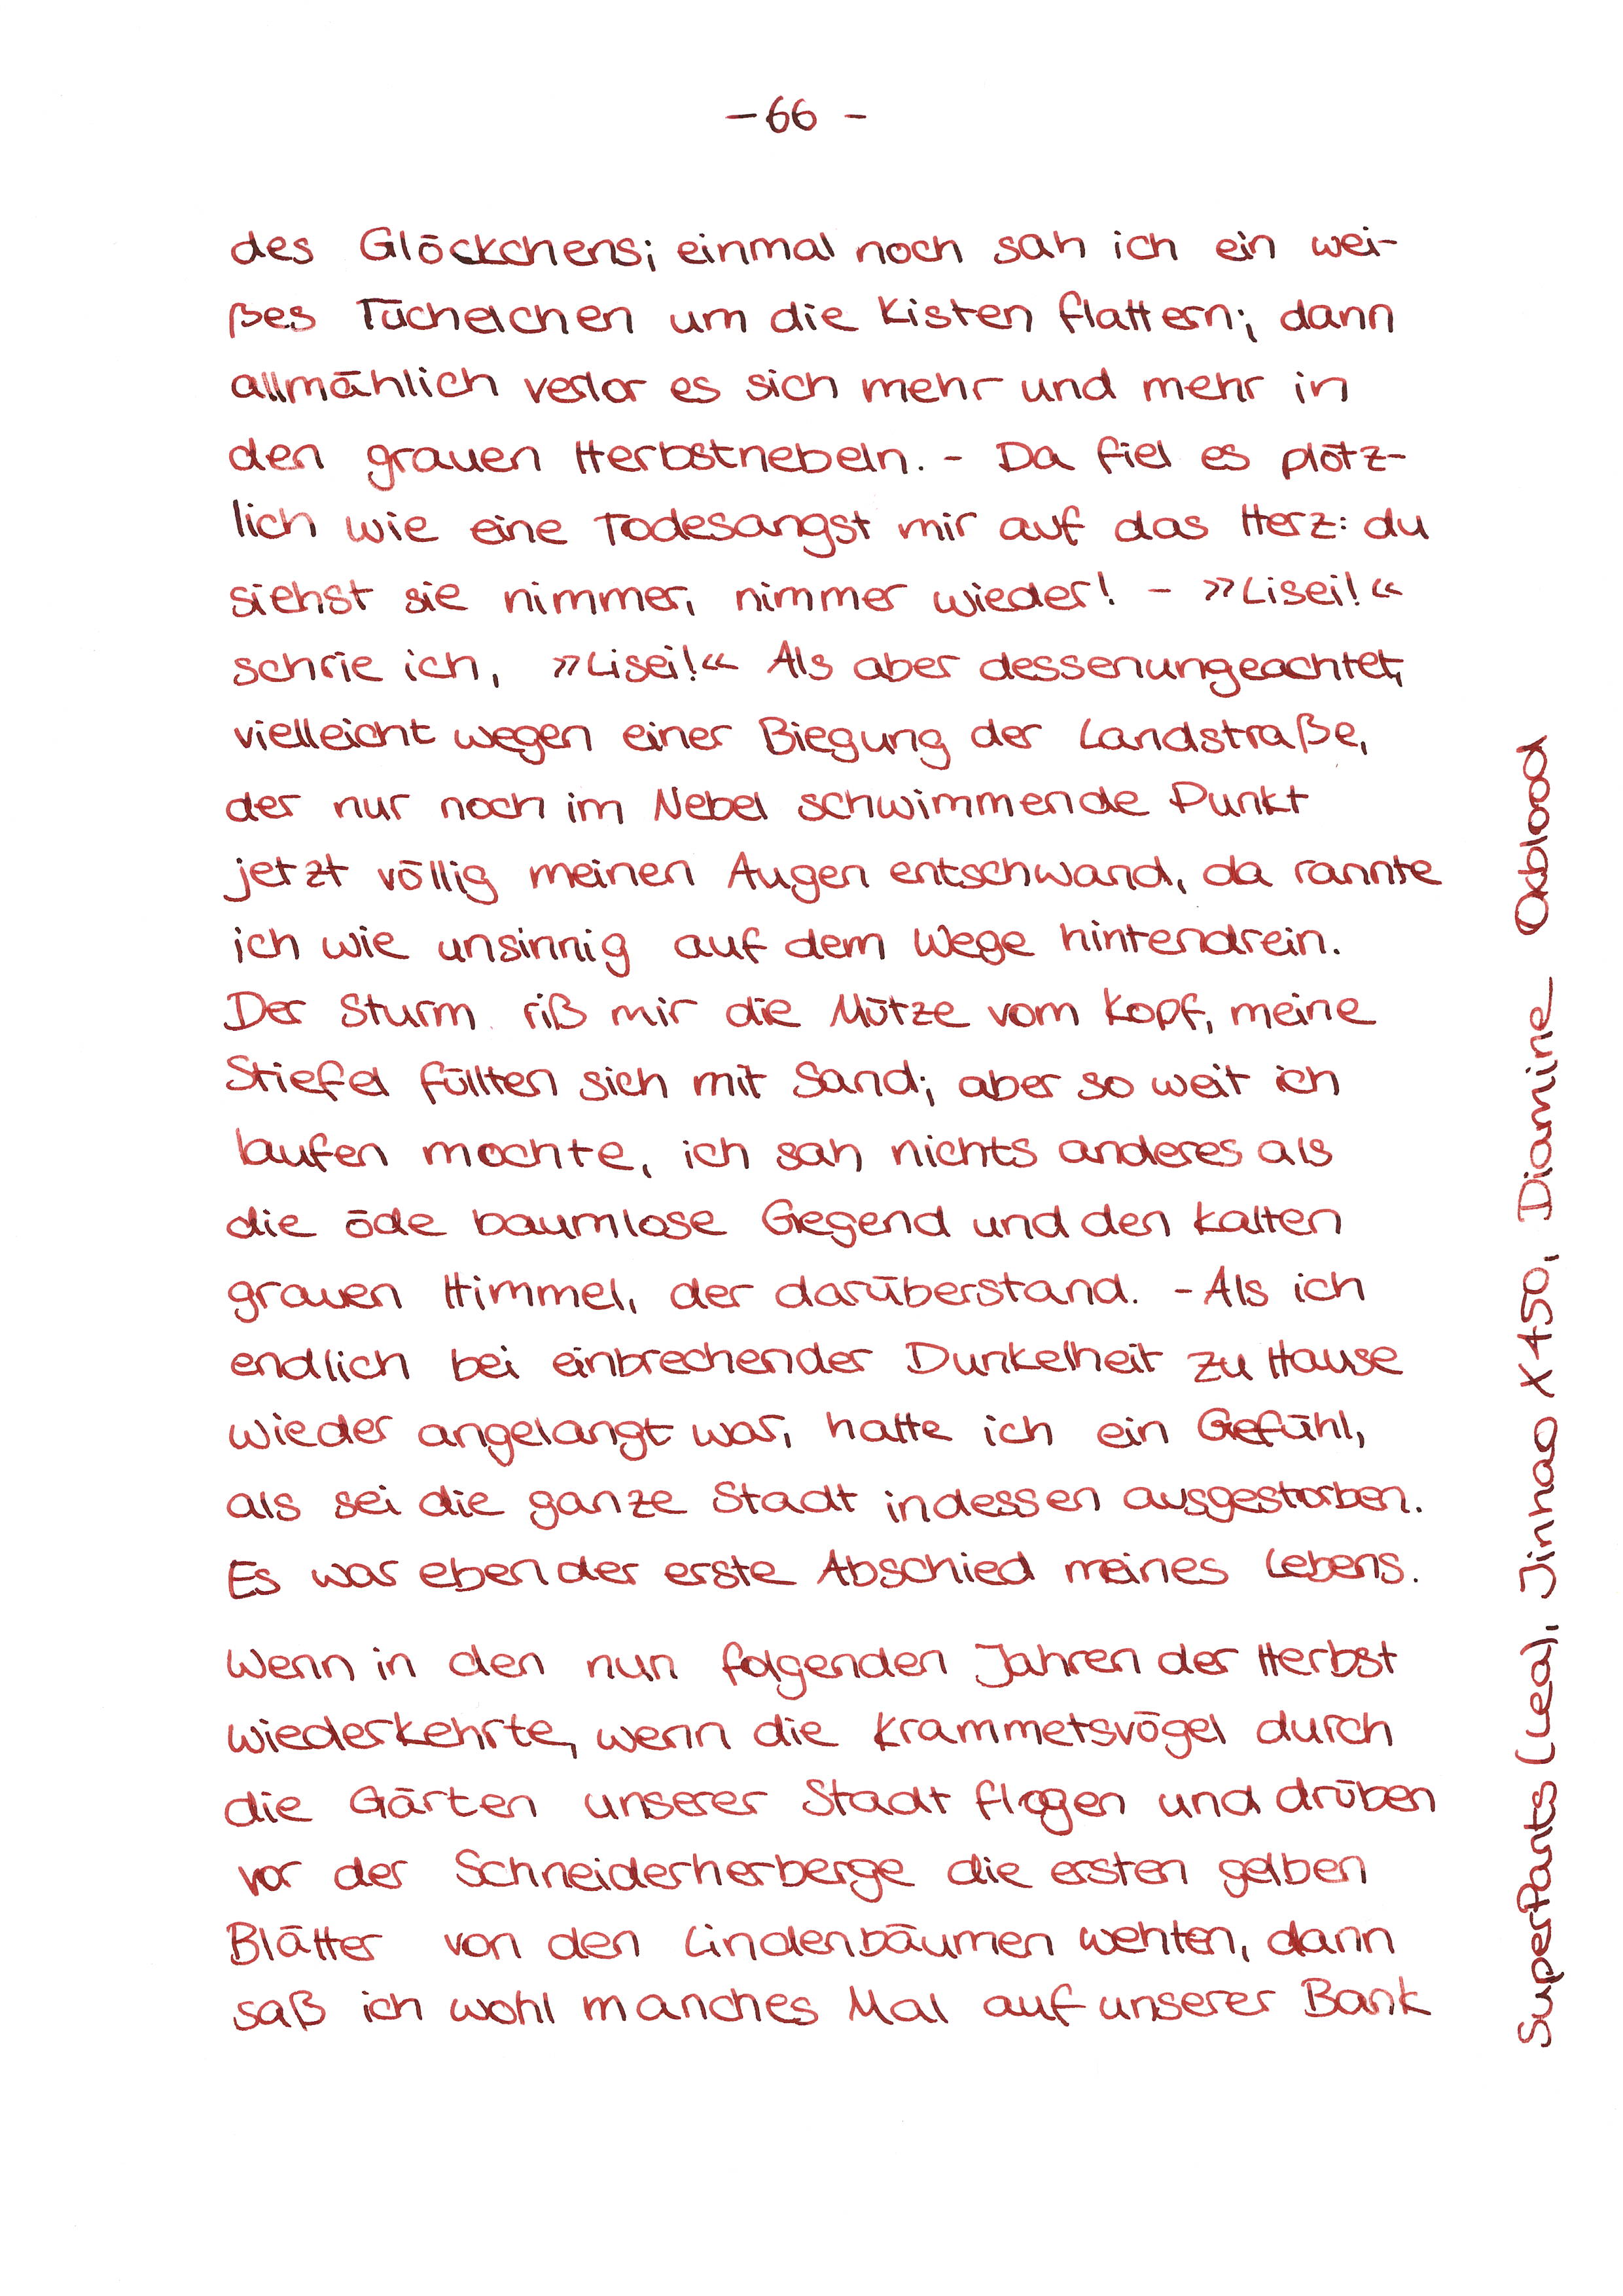 - 66 -
des Glöckchens; einmal noch sah ich ein wei-
ßes Tüchelchen um die Kisten flattern; dann
allmählich verlor es sich mehr und mehr in
den grauen Herbstnebeln. - Da fiel es plötz-
lich wie eine Todesangst mir auf das Herz: du
siehst sie nimmer, nimmer wieder! - »Lisei!«
schrie ich, »Lisei!« Als aber dessenungeachtet,
vielleicht wegen einer Biegung der Landstraße,
der nur noch im Nebel schwimmende Punkt
jetzt völlig meinen Augen entschwand, da rannte
ich wie unsinnig auf dem Wege hinterdrein.
Der Sturm riß mir die Mütze vom Kopf, meine
Stiefel füllten sich mit Sand; aber so weit ich
laufen mochte, ich sah nichts anderes als
die öde baumlose Gegend und den kalten
grauen Himmel, der darüberstand. - Als ich
endlich bei einbrechender Dunkelheit zu Hause
wieder angelangt war, hatte ich ein Gefühl,
als sei die ganze Stadt indessen ausgestorben.
Es war eben der erste Abschied meines Lebens.
Wenn in den nun folgenden Jahren der Herbst
wiederkehrte, wenn die Krammetsvögel durch
die Gärten unserer Stadt flogen und drüben
vor der Schneiderherberge die ersten gelben
Blätter von den Lindenbäumen wehten, dann
saß ich wohl manches Mal auf unserer Bank
SuperPants (Lea), Jinhao X450, Diamine Oxblood